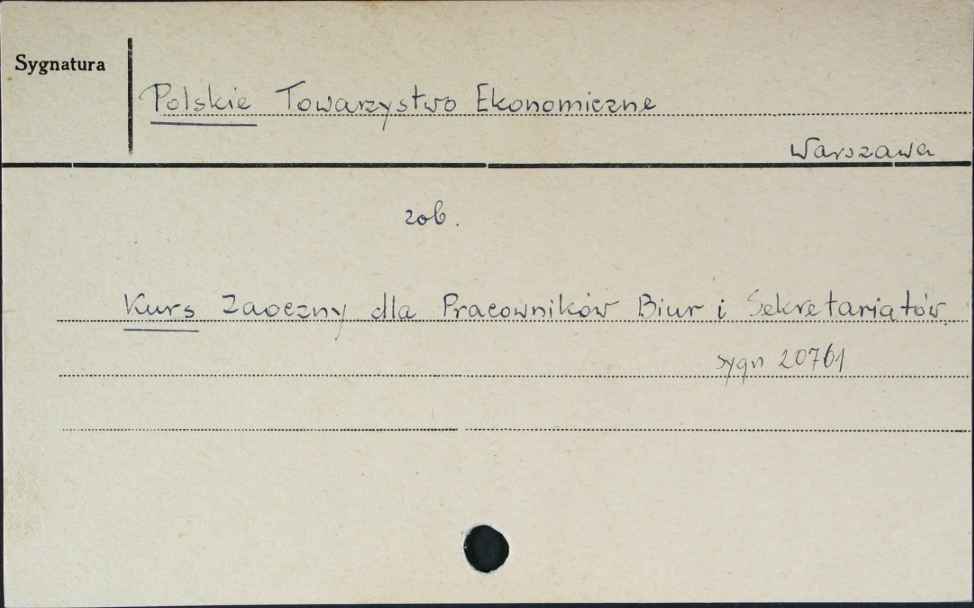 Sygnatura
Polskie Towarzystwo Ekonomiczne
Warszawa
zob.
Kurs Zaoczny dla Pracowników Biur i Sekretariatów.
sygn 20761